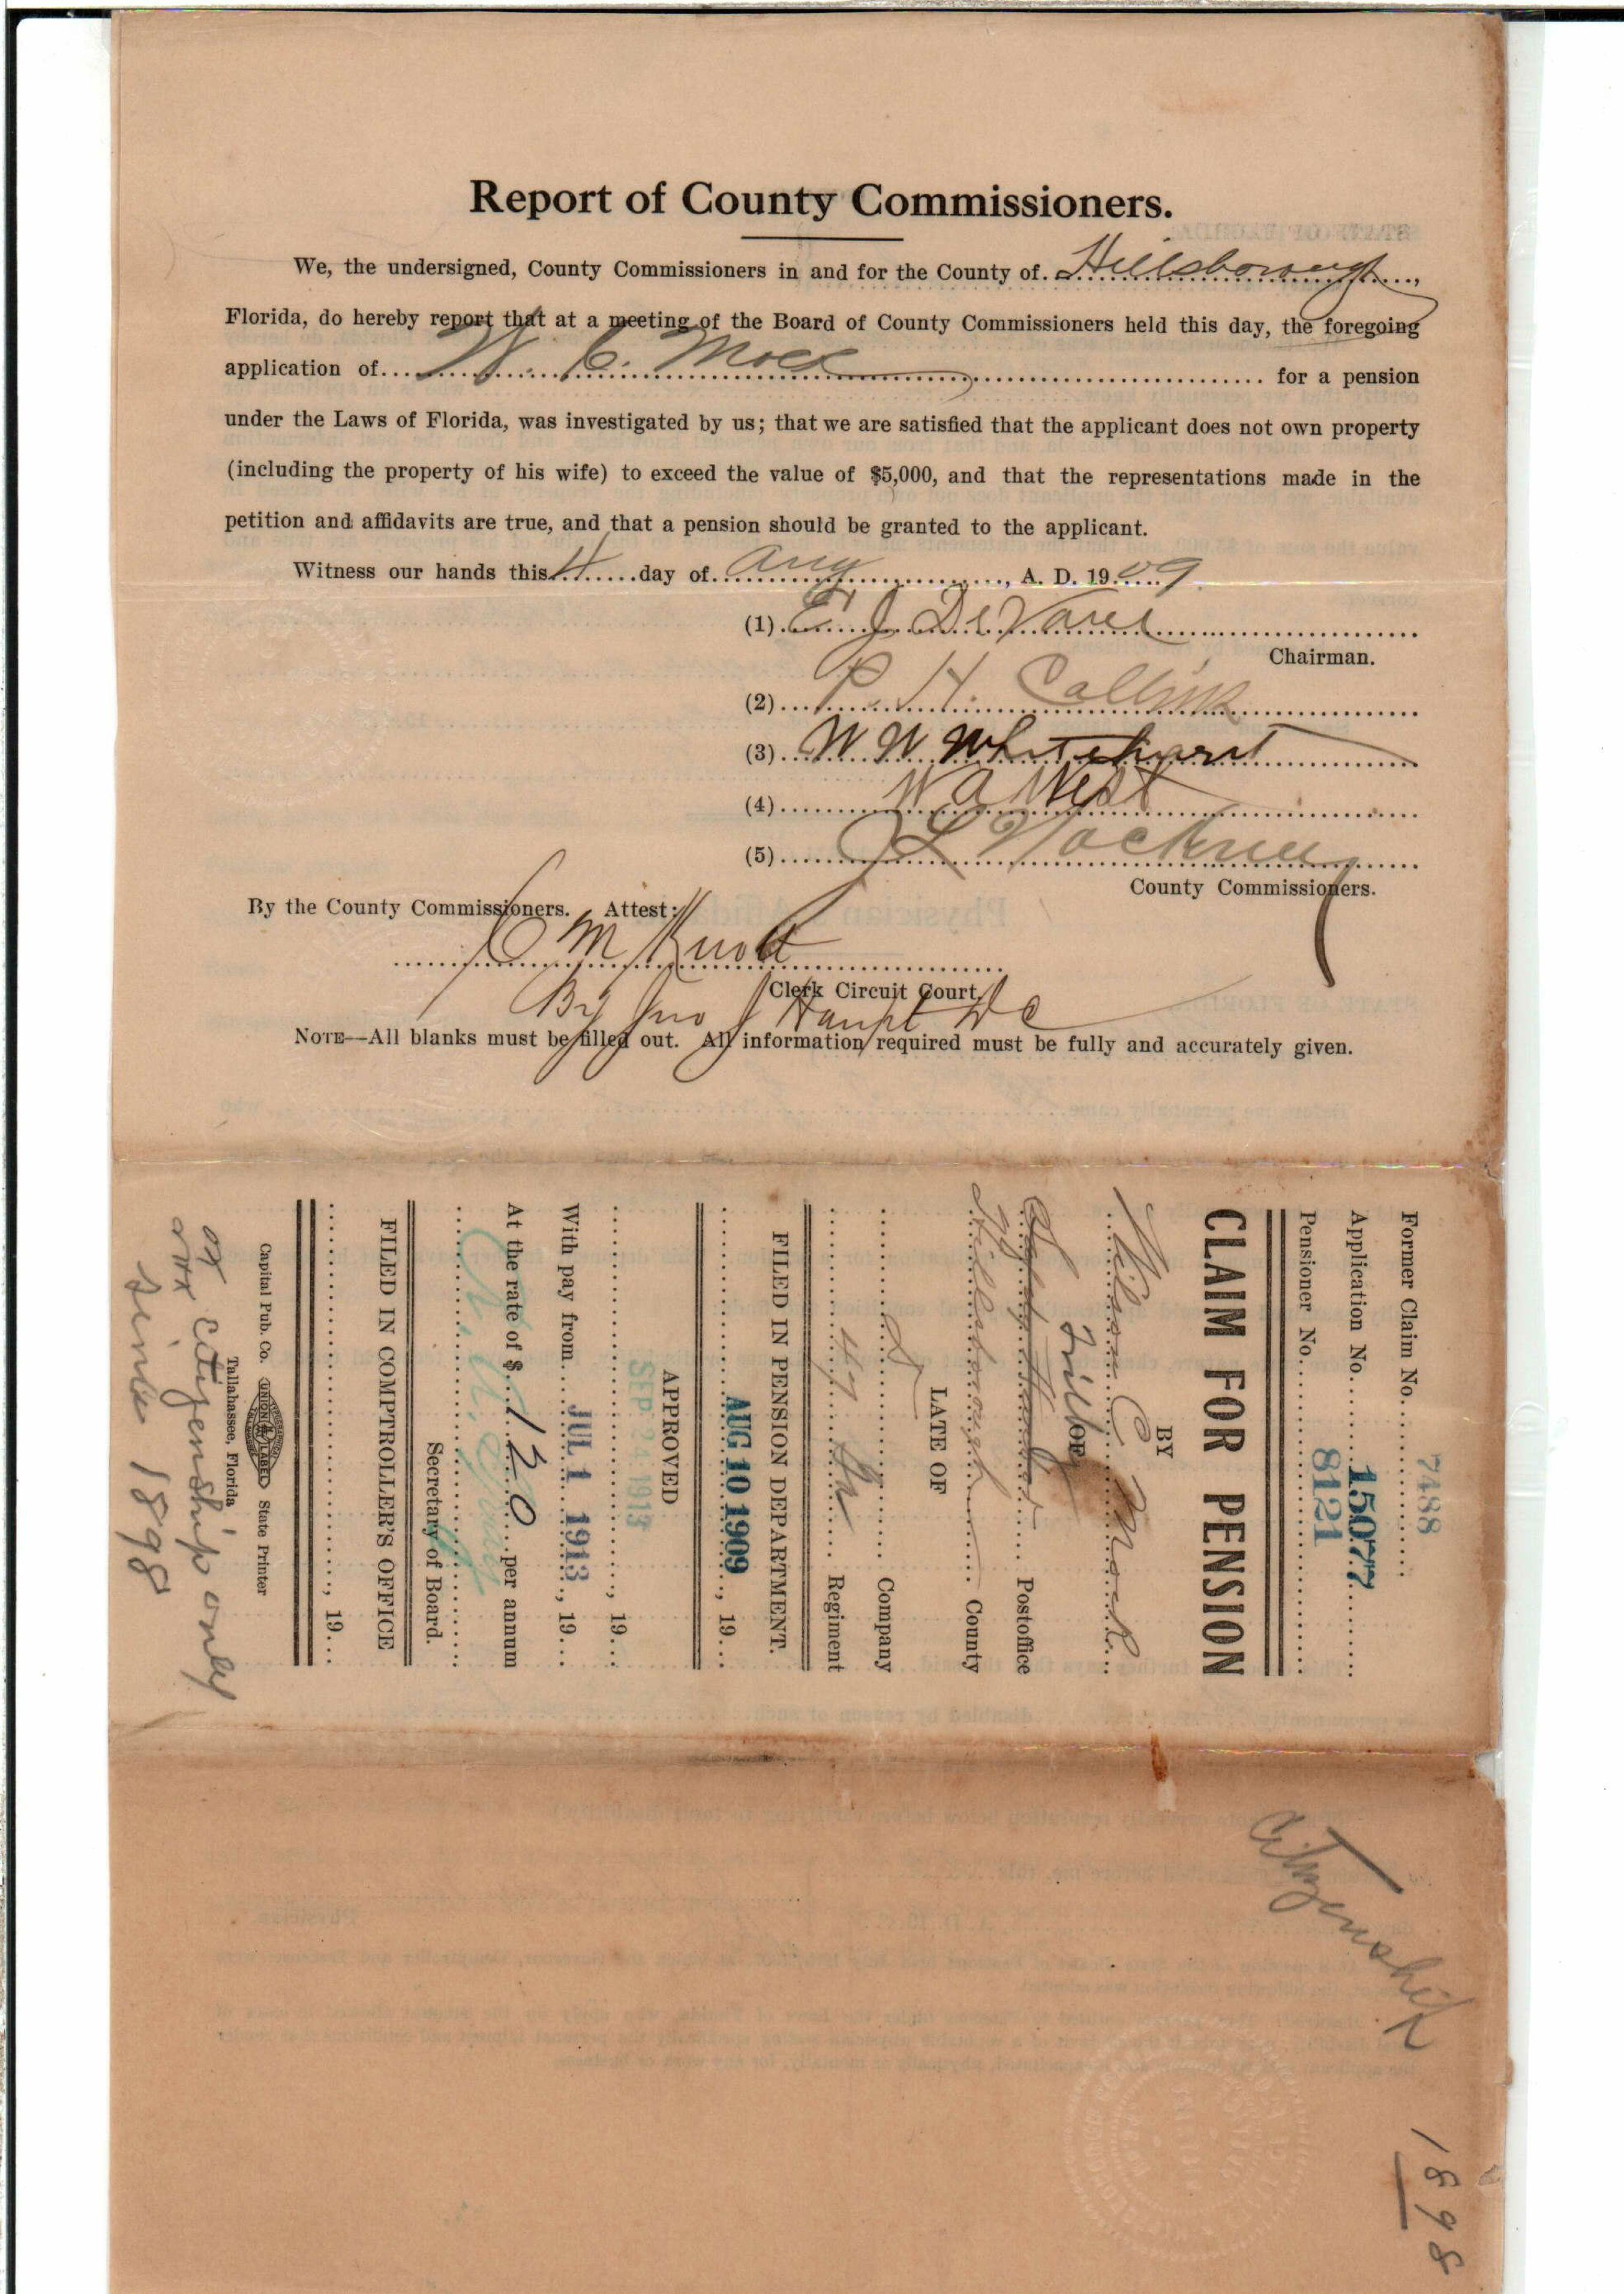 Report of County Commissioners.
We, the undersigned, County Commissioners in and for the County of. Hillsborough,
Florida, do hereby report that at a meeting of the Board of County Commissioners held this day, the foregoing
application of W. C. Mock for a pension
under the Laws of Florida, was investigated by us; that we are satisfied that the applicant does not own property
(including the property of his wife) to exceed the value of $5,000, and that the representations made in the
petition and affidavits are true, and that a pension should be granted to the applicant.
Witness our hands this 4 day of Aug, A. D. 1909
(1) E J DeVane
Chairman.
(2) P. H. Collins
(3) W W Whitehurst
(4) W A West
(5) J L
County Commissioners.
By the County Commissioners. Attest:
C M Knott
Clerk Circuit Court.
By Jno J Haupt DC
NOTE—All blanks must be filled out. All information required must be fully and accurately given.
Former Claim No. 7488
Application No. 15077
Pensioner No. 8121
CLAIM FOR PENSION
BY
Wilson C Mock
OF
Trilby
Postoffice
Hillsborough County
LATE OF
Company
47 Ga Regiment
FILED IN PENSION DEPARTMENT.
AUG 10 1909, 19
APPROVED
SEP 24 1913, 19
With pay from JUL 1 1913, 19
At the rate of $ 120 per annum
Secretary of Board.
FILED IN COMPTROLLER'S OFFICE
, 19
Capital Pub. Co. UNION LABEL State Printer
Tallahassee, Florida
OK
citizenship only
since 1898
Citizenship
1898